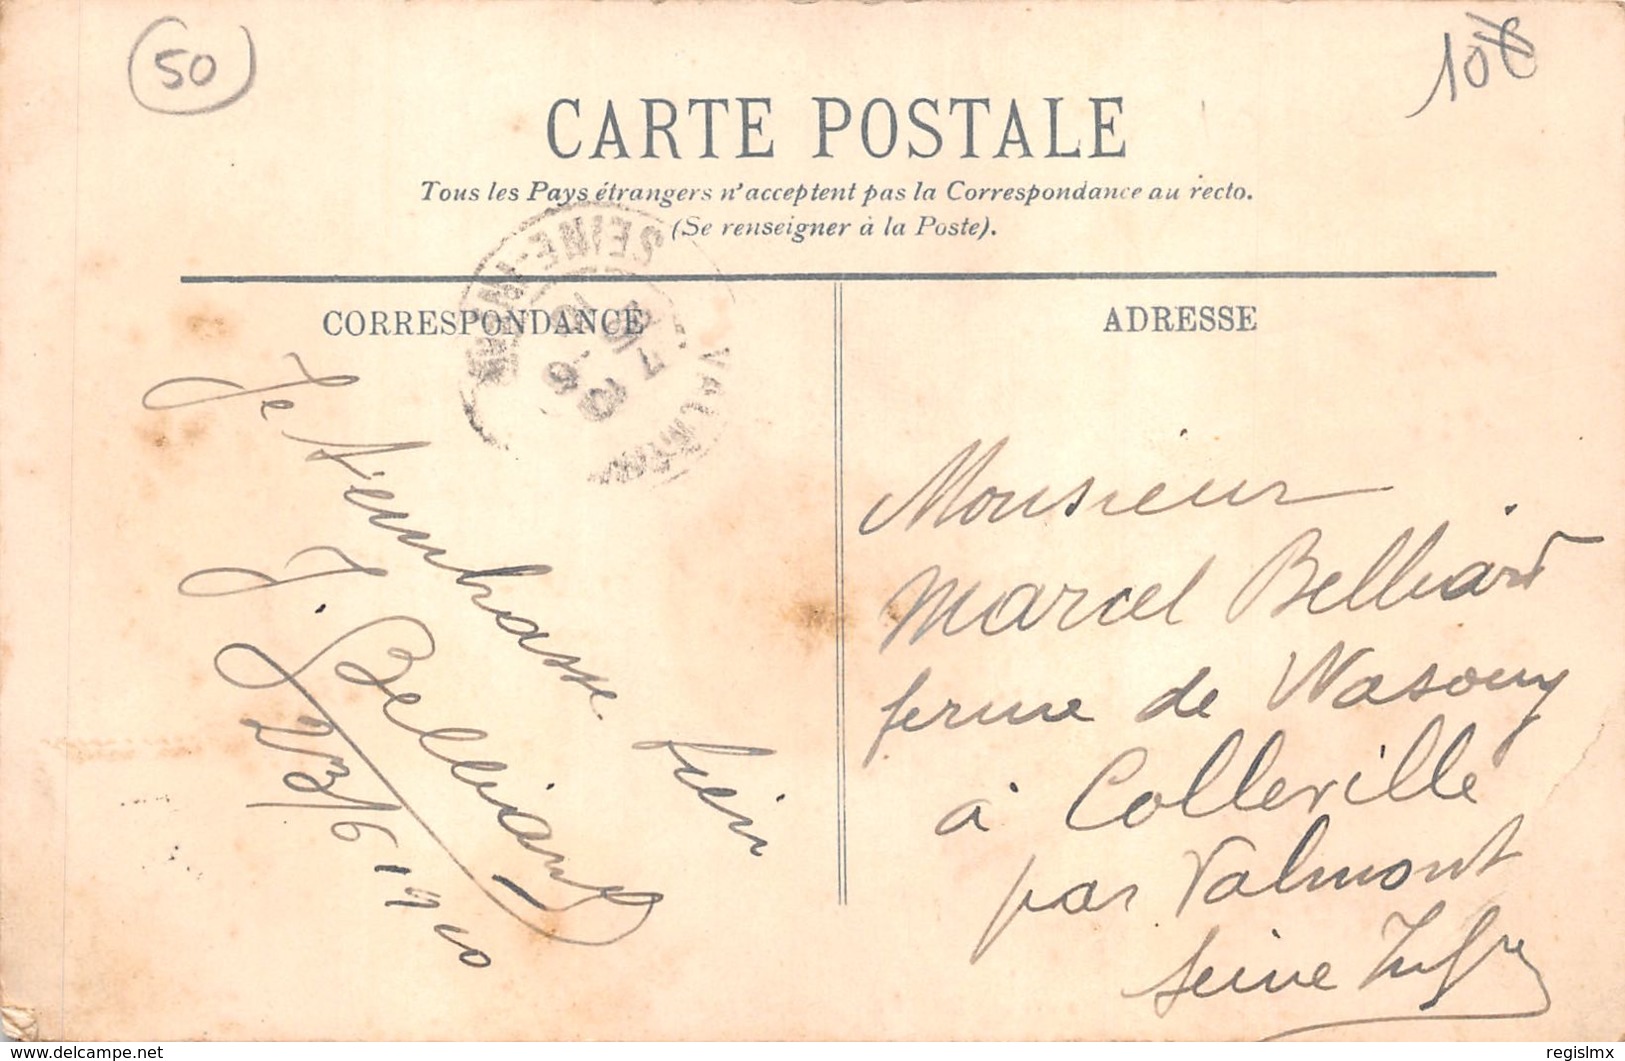 50
10€
CARTE POSTALE
Tous les Pays étrangers n'acceptent pas la Correspondance au recto.
(Se renseigner à la Poste).
CORRESPONDANCE
Je t'embrasse bien
J. Belliard
23/6 1910
VALMONT
SEINE-INFRE
ADRESSE
Monsieur
Marcel Belliard
ferme de
à Colleville
par Valmont
Seine Infre
www.delcampe.net
regislmx